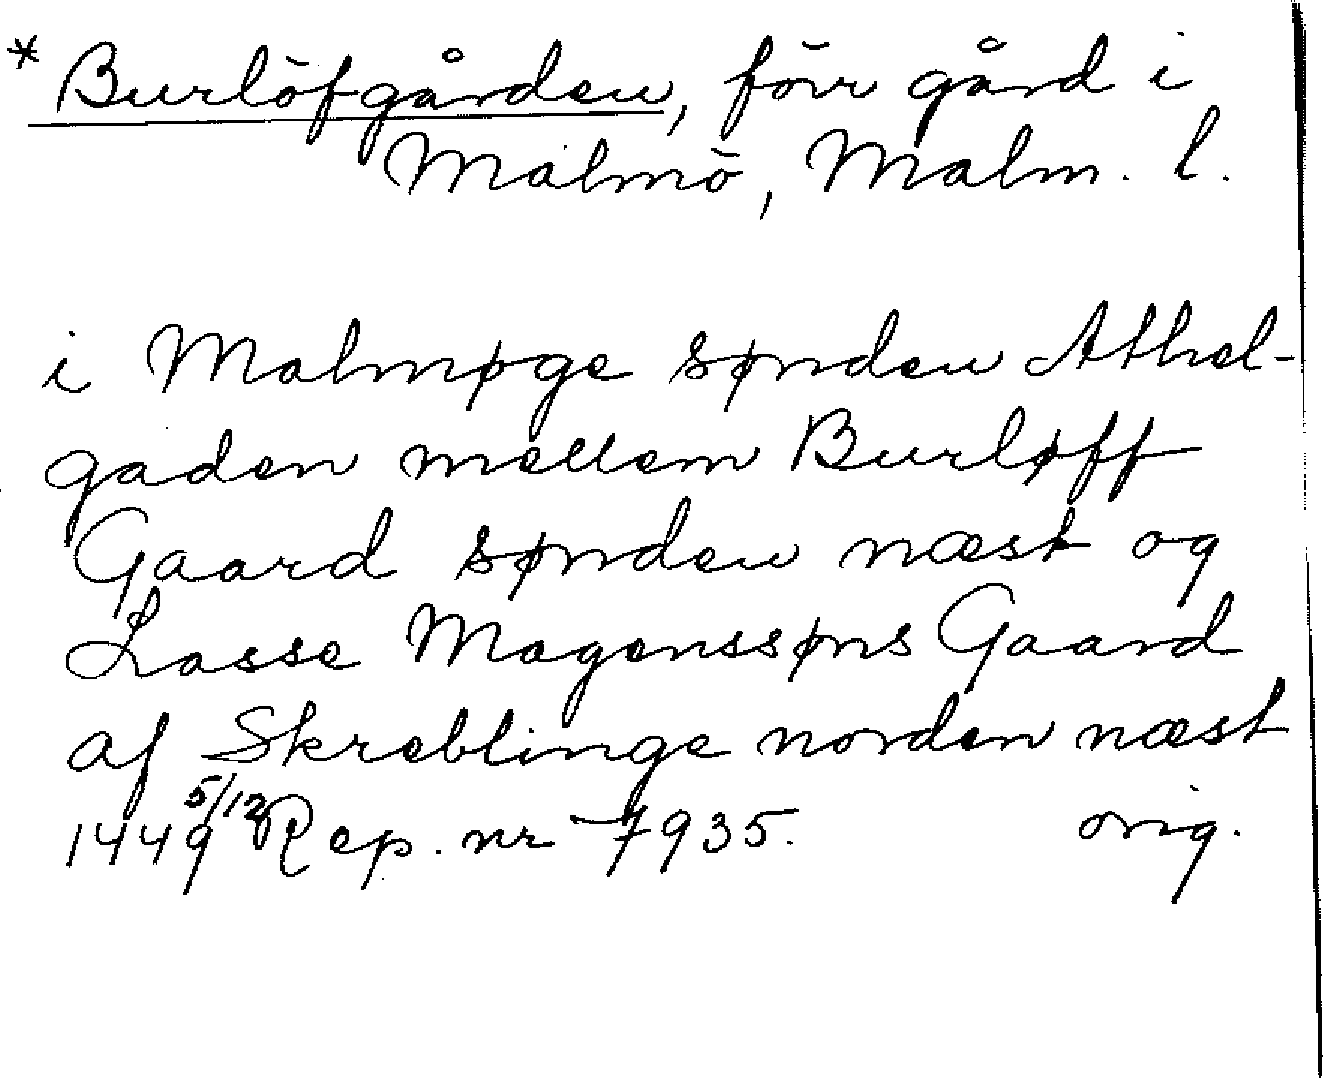 * Burlöfgården, förr gård i
Malmö, Malm. l.
i Malmøge sønden Athel-
gaden mellem Burløff
Gaard sønden næst og
Lasse Magenssøns Gaard
af Skreblinge norden næst
1449 5/12 Rep. nr 7935. orig.